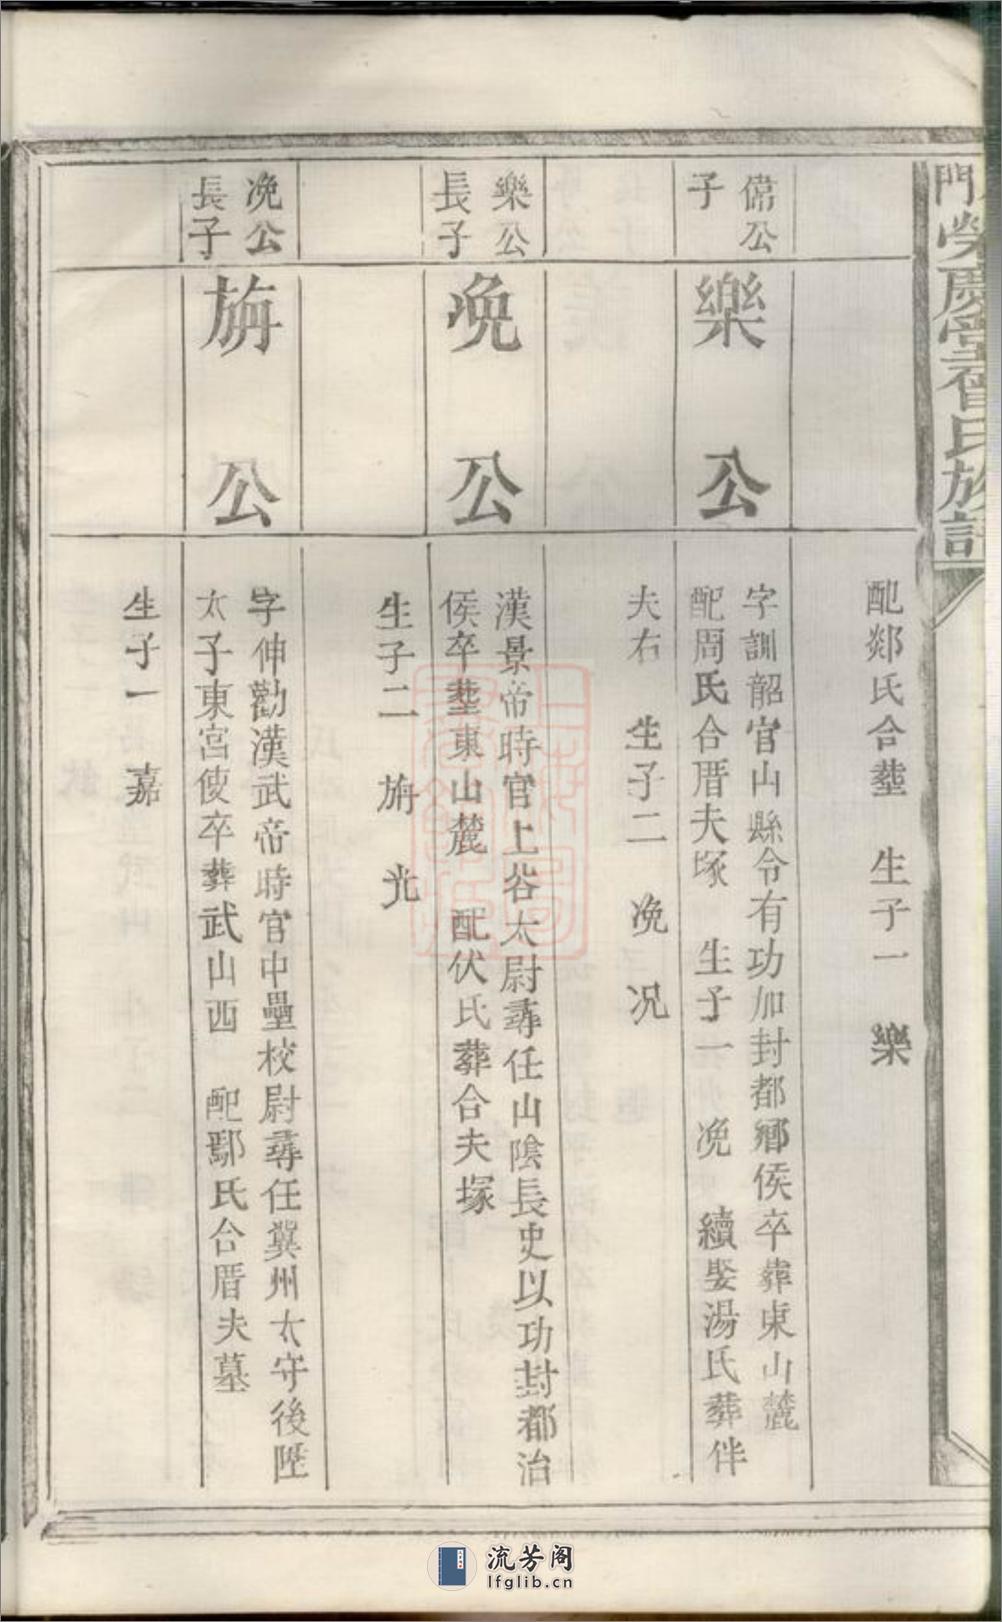 門榮慶堂曾氏族譜
配郯氏合塟　生子一　樂
偹公
子
樂公
字訓韶官山縣令有功加封都鄉侯卒葬東山麓
配周氏合厝夫塚　生子一　浼　續娶湯氏葬伴
夫右　生子二　浼　况
樂公
長子
浼公
漢景帝時官上谷太尉尋任山陰長史以功封都治
侯卒塟東山麓　配伏氏葬合夫塚
生子二　旃　光
浼公
長子
旃公
字伸勸漢武帝時官中壘校尉尋任冀州太守後陞
太子東宮使卒葬武山西　配鄢氏合厝夫墓
生子一　嘉
流芳阁
lfglib.cn